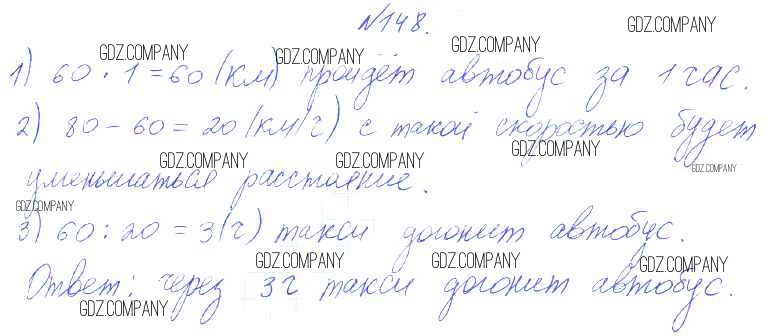 №148.
1) 60 · 1 = 60 (км) пройдёт автобус за 1 час.
2) 80 - 60 = 20 (км/ч) с такой скоростью будет
уменьшаться расстояние.
3) 60 : 20 = 3 (ч) такси догонит автобус.
Ответ: через 3 ч такси догонит автобус.
GDZ.COMPANY
GDZ.COMPANY
GDZ.COMPANY
GDZ.COMPANY
GDZ.COMPANY
GDZ.COMPANY
GDZ.COMPANY
GDZ.COMPANY
GDZ.COMPANY
GDZ.COMPANY
GDZ.COMPANY
GDZ.COMPANY
GDZ.COMPANY